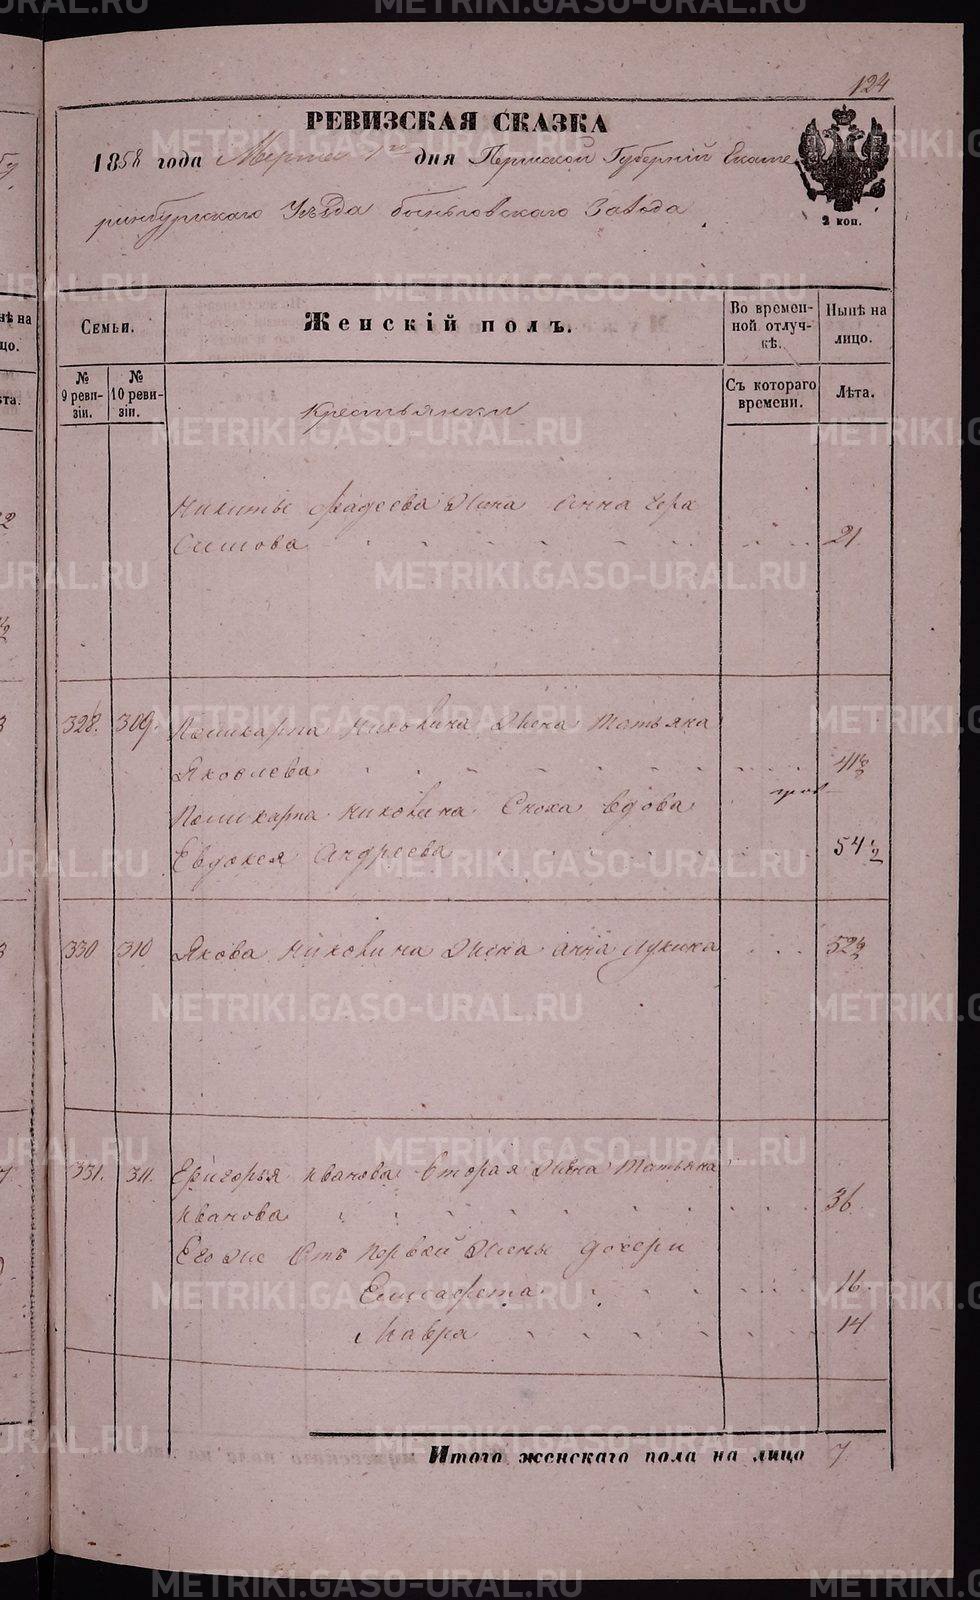 124
РЕВИЗСКАЯ СКАЗКА
1858 года Марта 1го дня Пермской Губерній Екате
ринбургскаго Уезда быньговскаго Завода
2 коп.
Семьи.
Женскій полъ.
Во времен-
ной отлуч-
кѣ.
Нынѣ на
лицо.
№
9 реви-
зіи.
№
10 реви-
зіи.
Съ котораго
времени.
Лѣта.
Крестьянки
Никиты Фадеева Жена Анна Гера
симова 21
328. 309. Поликарпа Никовина Жена Татьяна
Яковлева 41½
Поликарпа Никовина Сноха вдова
Евдокея Андреева 54½
330 310 Якова Никовина Жена Анна Лукина 52½
331. 311. Григорья Иванова Вторая Жена Татьяна
Иванова 36
Его же Отъ Первой Жены дочери
Елисафета 16
Мавра 14
Итого женскаго пола на лицо 7
METRIKI.GASO-URAL.RU